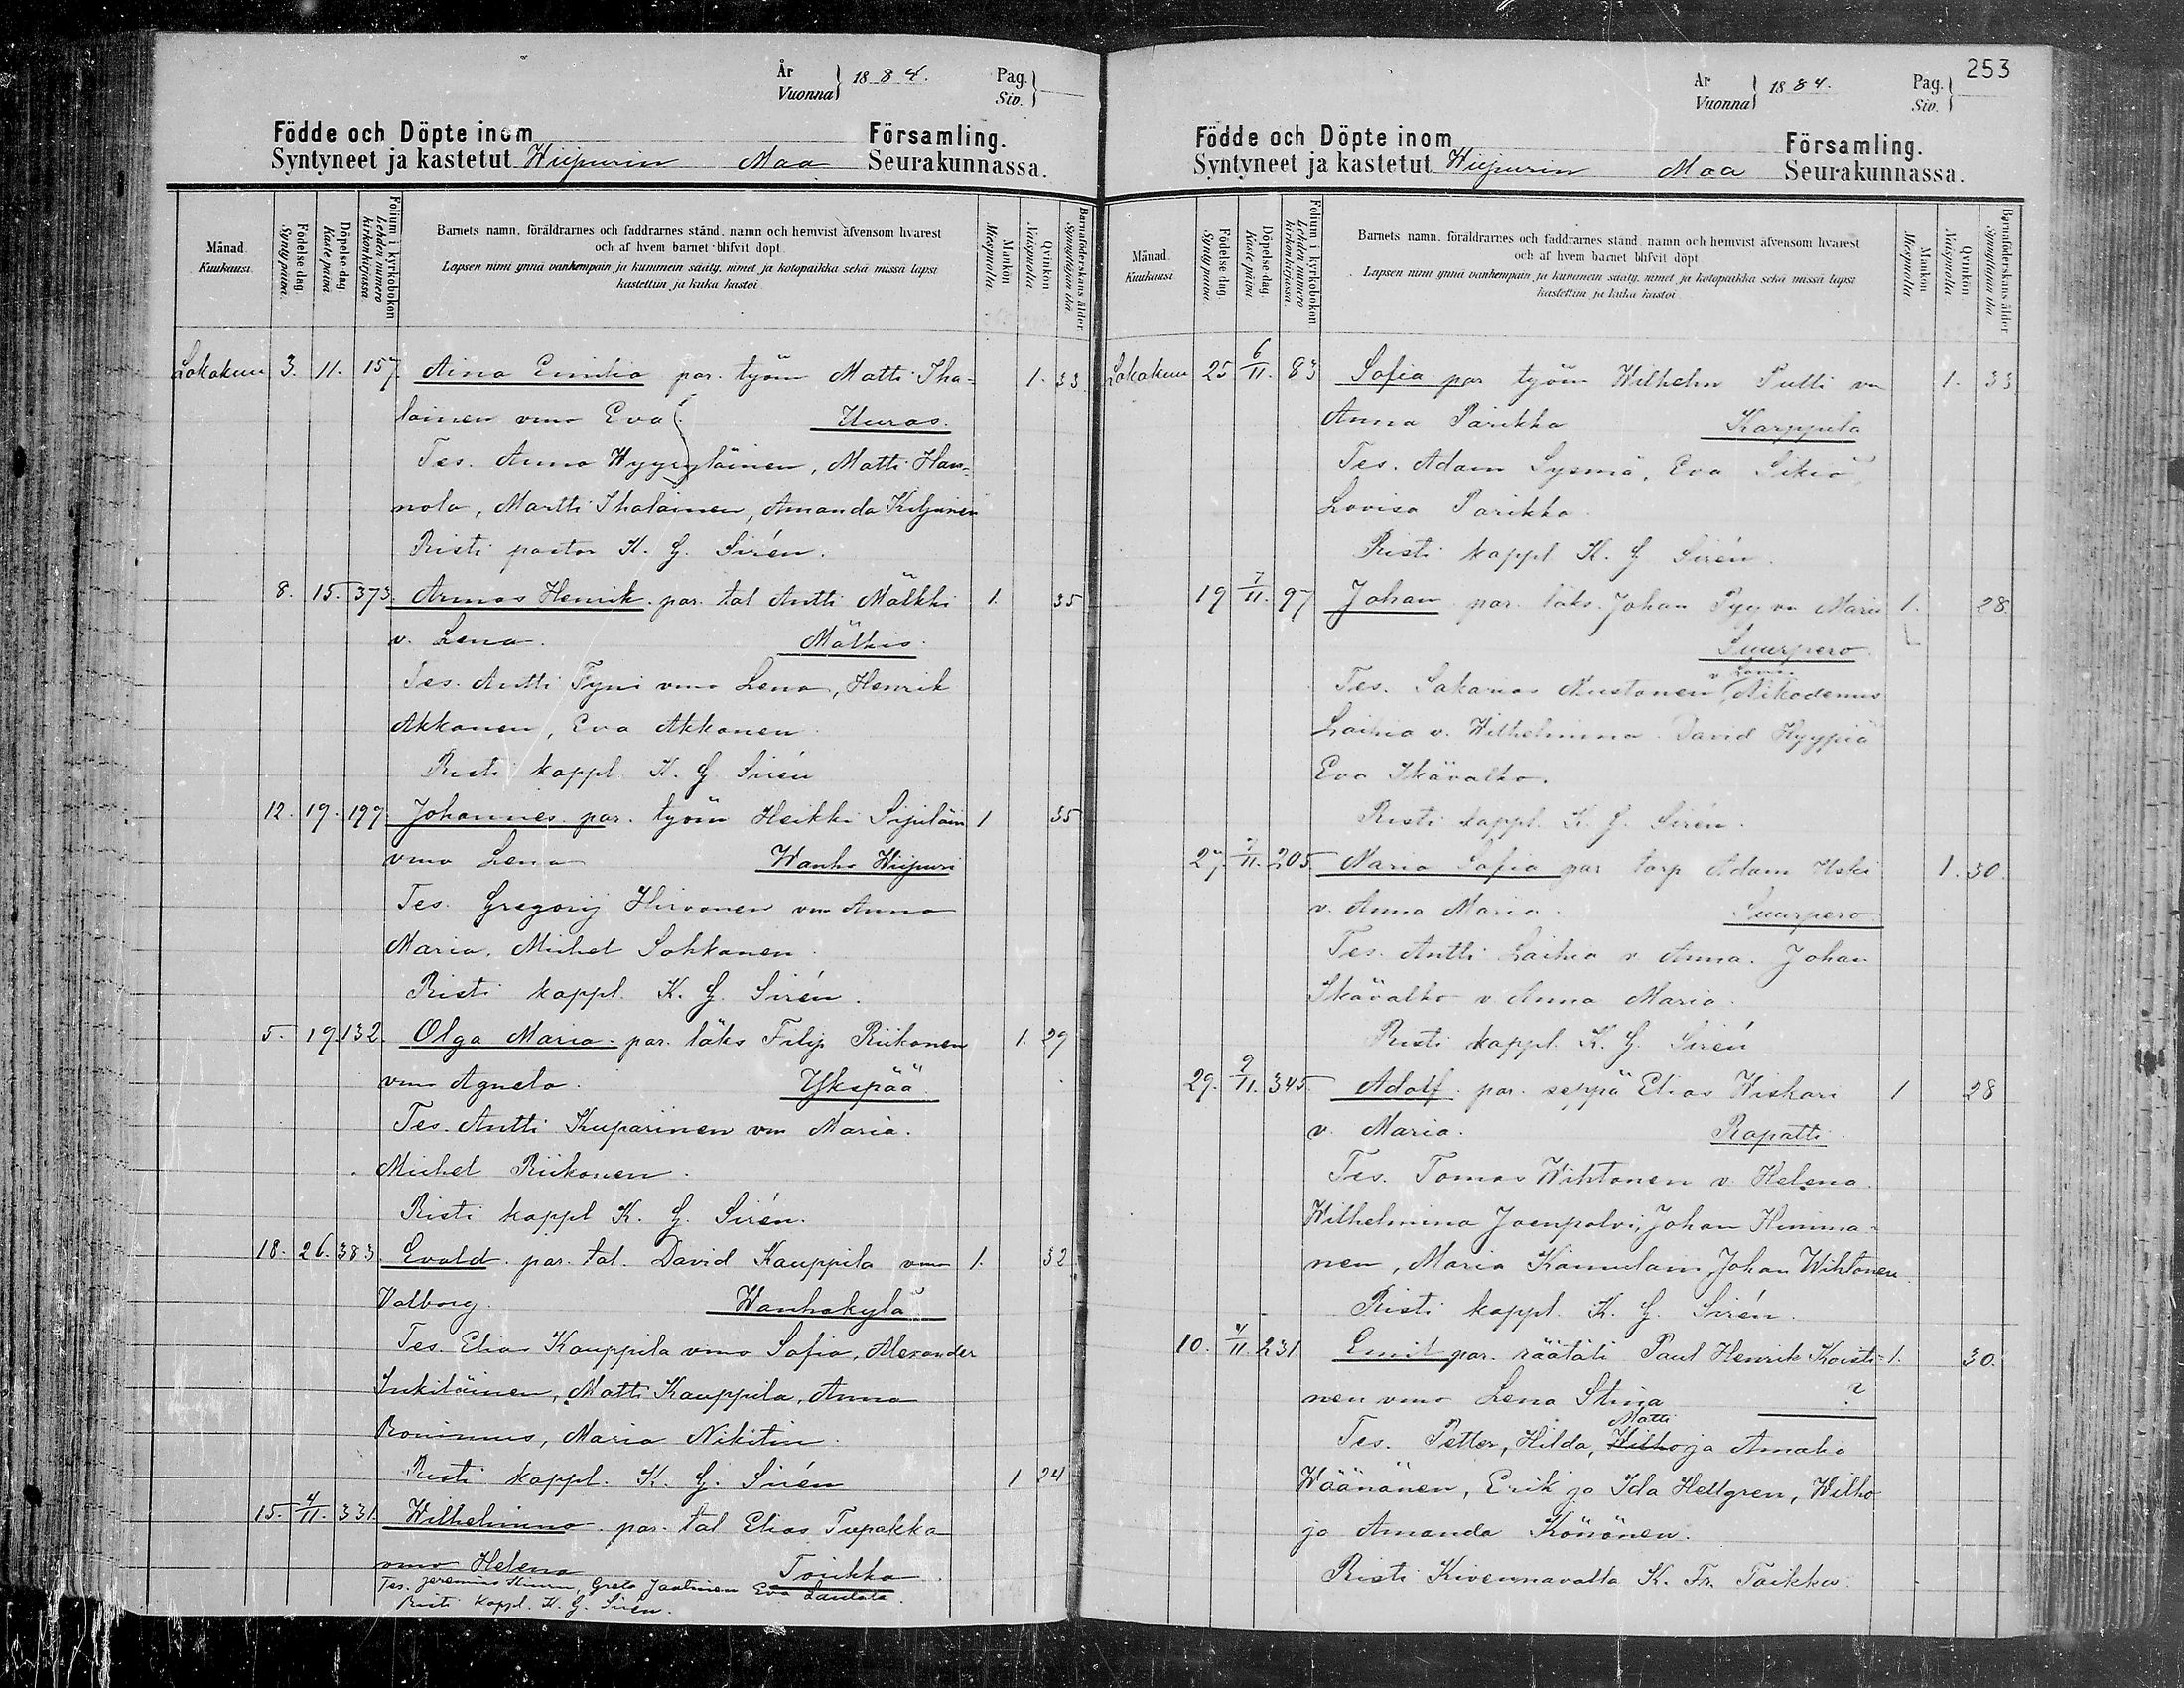 År
Vuonna } 1884.
Pag.
Siv. }
Födde och Döpte inom Församling.
Syntyneet ja kastetut Wiipurin Maa Seurakunnassa.
Månad.
Kuukausi.
Födelse dag.
Synty päivä.
Döpelse dag.
Kaste päivä
Folium i kyrkoboken
Lehden numero
kirkonkirjassa
Barnets namn, föräldrarnes och faddrarnes stånd, namn och hemvist äfvensom hvarest
och af hvem barnet blifvit döpt.
Lapsen nimi ynnä vanhempain ja kummein sääty, nimet ja kotopaikka sekä missä lapsi
kastettiin ja kuka kastoi
Mankön
Miespuolta.
Qvinkön
Naispuolta.
Barnaföderskans ålder
Synnyttäjän ikä.
Lokakuu 3. 11. 157. Aina Emilia par. työm Matti Iha- 1. 33
lainen vmo Eva Uuras.
Tes. Anna Hyyryläinen, Matti Han-
nola, Martti Ihalainen, Amanda Kiljunen
Risti pastor K. G. Sirén.
8. 15. 373. Armas Henrik par. tal Antti Mälkki 1. 35
v. Lena. Mälkis.
Tes. Antti Tyni vmo Lena, Henrik
Akkanen, Eva Akkanen
Risti kappl. K. G. Sirén
12. 19. 199. Johannes par. työm Heikki Sipiläin 1 35
vmo Lena Wanha Wiipuri
Tes. Gregorij Hirvonen vm Anna
Maria, Michel Sohkanen.
Risti kappl. K. G. Sirén.
5. 19 132. Olga Maria par. läks Filip Riikonen 1. 29
vmo Agneta. Ykspää.
Tes. Antti Kuparinen vm Maria.
Michel Riikonen.
Risti kappl K. G. Sirén.
18. 26. 383. Evald par. tal. David Kauppila vmo 1. 32
Valborg. Wanhakylä
Tes. Elias Kauppila vmo Sofia, Alexander
Inkiläinen, Matti Kauppila, Anna
Maria Nikitin.
Risti kappl. K. G. Sirén 1 24
15. 4/11. 331. Wilhelmina par. tal Elias Tupakka
vmo Helena Toikka
Tes. Jeremias Greta Jaatinen Eva
Risti kappl. K. G. Sirén.
253
År
Vuonna } 1884.
Pag.
Siv. }
Födde och Döpte inom Församling.
Syntyneet ja kastetut Wiipurin Maa Seurakunnassa.
Månad.
Kuukausi
Födelse dag.
Synty päivä.
Döpelse dag.
Kaste päivä
Folium i kyrkoboken
Lehden numero
kirkonkirjassa.
Barnets namn, föräldrarnes och faddrarnes stånd, namn och hemvist äfvensom hvarest
och af hvem barnet blifvit döpt
Lapsen nimi ynnä vanhempain ja kummein sääty, nimet ja kotopaikka sekä missä lapsi
kastettiin ja kuka kastoi
Mankön
Miespuolta
Qvinkön
Naispuolta
Barnaföderskans ålder
Synnyttäjän ikä
Lokakuu 25 6/11. 83 Sofia par työm Wilhelm Putti vm 1. 33
Anna Parikka Karppila
Tes. Adam Sysmä, Eva Sikiö,
Lovisa Parikka
Risti kappl K. G Sirén.
19 7/11. 97 Johan par. läks. Johan Pyy vm Maria 1. 28.
Suurpero
Tes. Sakarias Mustonen v. Lovis. Nikodemus
Laihia v. Wilhelmina David Hyypiä
Eva Ikävalko.
Risti kappl. K. G. Sirén.
27. 7/11. 205 Maria Sofia par torp Adam Uski 1. 30.
v. Anna Maria. Suurpero
Tes. Antti Laihia v. Anna. Johan
Ikävalko v. Anna Maria.
Risti kappl. K. G. Sirén
29. 9/11. 345. Adolf par. seppä Elias Wiskari 1 28
v. Maria. Rapatti.
Tes. Tomas Wihtonen v. Helena.
Wilhelmina Joenpolvi, Johan Himma-
nen, Maria Johan Wihtonen.
Risti kappl. K. G. Sirén.
10. 4/11. 231 Emil par. räätäli Paul Henrik Koisti- 1. 30.
nen vmo Lena Stina ?
Tes. Petter, Hilda, Wilho Matti ja Amalia
Wäänänen, Erik ja Ida Hellgren, Wilho
ja Amanda Könönen.
Risti Kivennavalla K. Fr. Toikka.